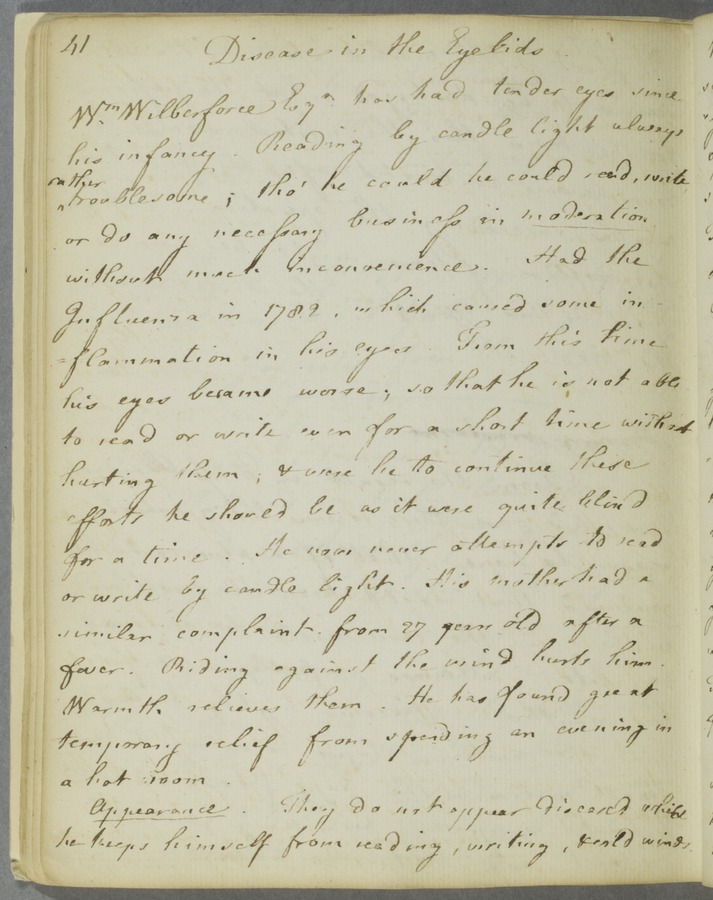 41
Disease in the Eyelids
Wm. Wilberforce Esqr. has had tender eyes since
his infancy. Reading by candle light always
rather
troublesome; tho' he could he could read, write
or do any necessary business in moderation
without much inconvenience. Had the
Influenza in 1782, which caused some in
=flammation in his eyes. From this time
his eyes became worse; so that he is not able
to read or write even for a short time without
hurting them; & were he to continue these
efforts he should be as it were quite blind
for a time. He now never attempts to read
or write by candle light. His mother had a
similar complaint from 27 years old after a
fever. Riding against the wind hurts him.
Warmth relieves them. He has found great
temporary relief from spending an evening in
a hot room.
Appearance. They do not appear diseased while
he keeps himself from reading, writing, & cold winds.